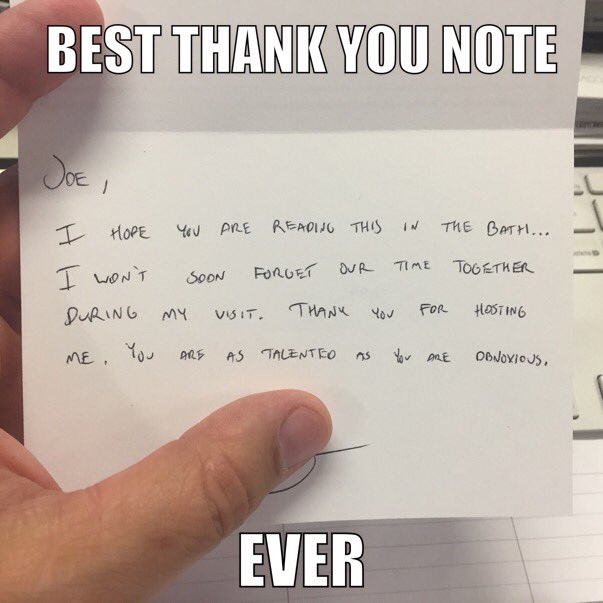 BEST THANK YOU NOTE
JOE,
I HOPE YOU ARE READING THIS IN THE BATH...
I WON'T SOON FORGET OUR TIME TOGETHER
DURING MY VISIT. THANK YOU FOR HOSTING
ME. YOU ARE AS TALENTED AS YOU ARE OBNOXIOUS.
EVER